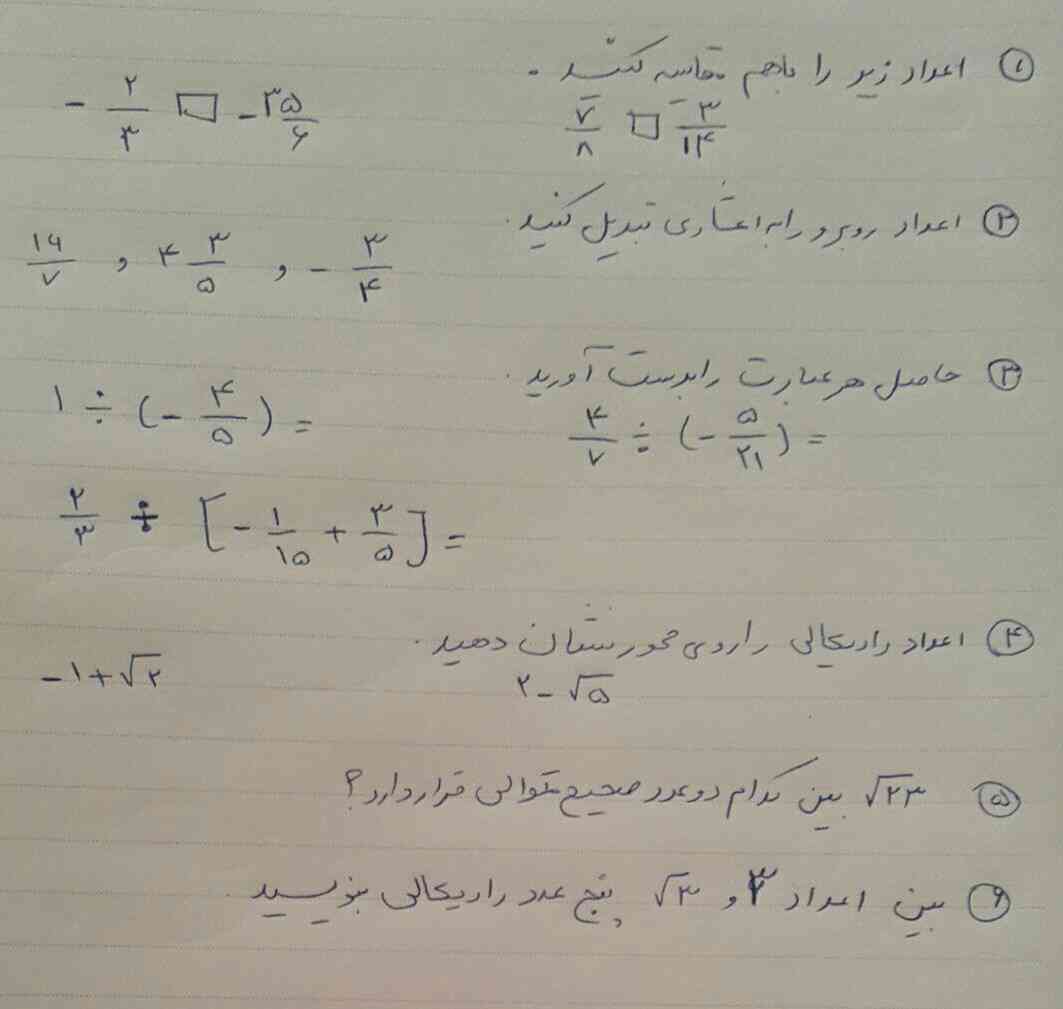 ① اعداد زیر را باهم مقایسه کنید.
۷/۸ □ ۳/۱۴    -۲/۳ □ -۳۵/۶
② اعداد روبرو را به اعشاری تبدیل کنید.
-۳/۴ , ۴ ۳/۵ , ۱۶/۷
③ حاصل هر عبارت را بدست آورید.
۴/۷ ÷ (-۵/۲۱) =    ۱ ÷ (-۴/۵) =
۲/۳ ÷ [-۱/۱۵ + ۳/۵] =
④ اعداد رادیکالی را روی محور نشان دهید.
۲-√۵    -۱+√۲
⑤ √۲۳ بین کدام دو عدد صحیح متوالی قرار دارد؟
⑥ بین اعداد ۳ و √۳ پنج عدد رادیکالی بنویسید